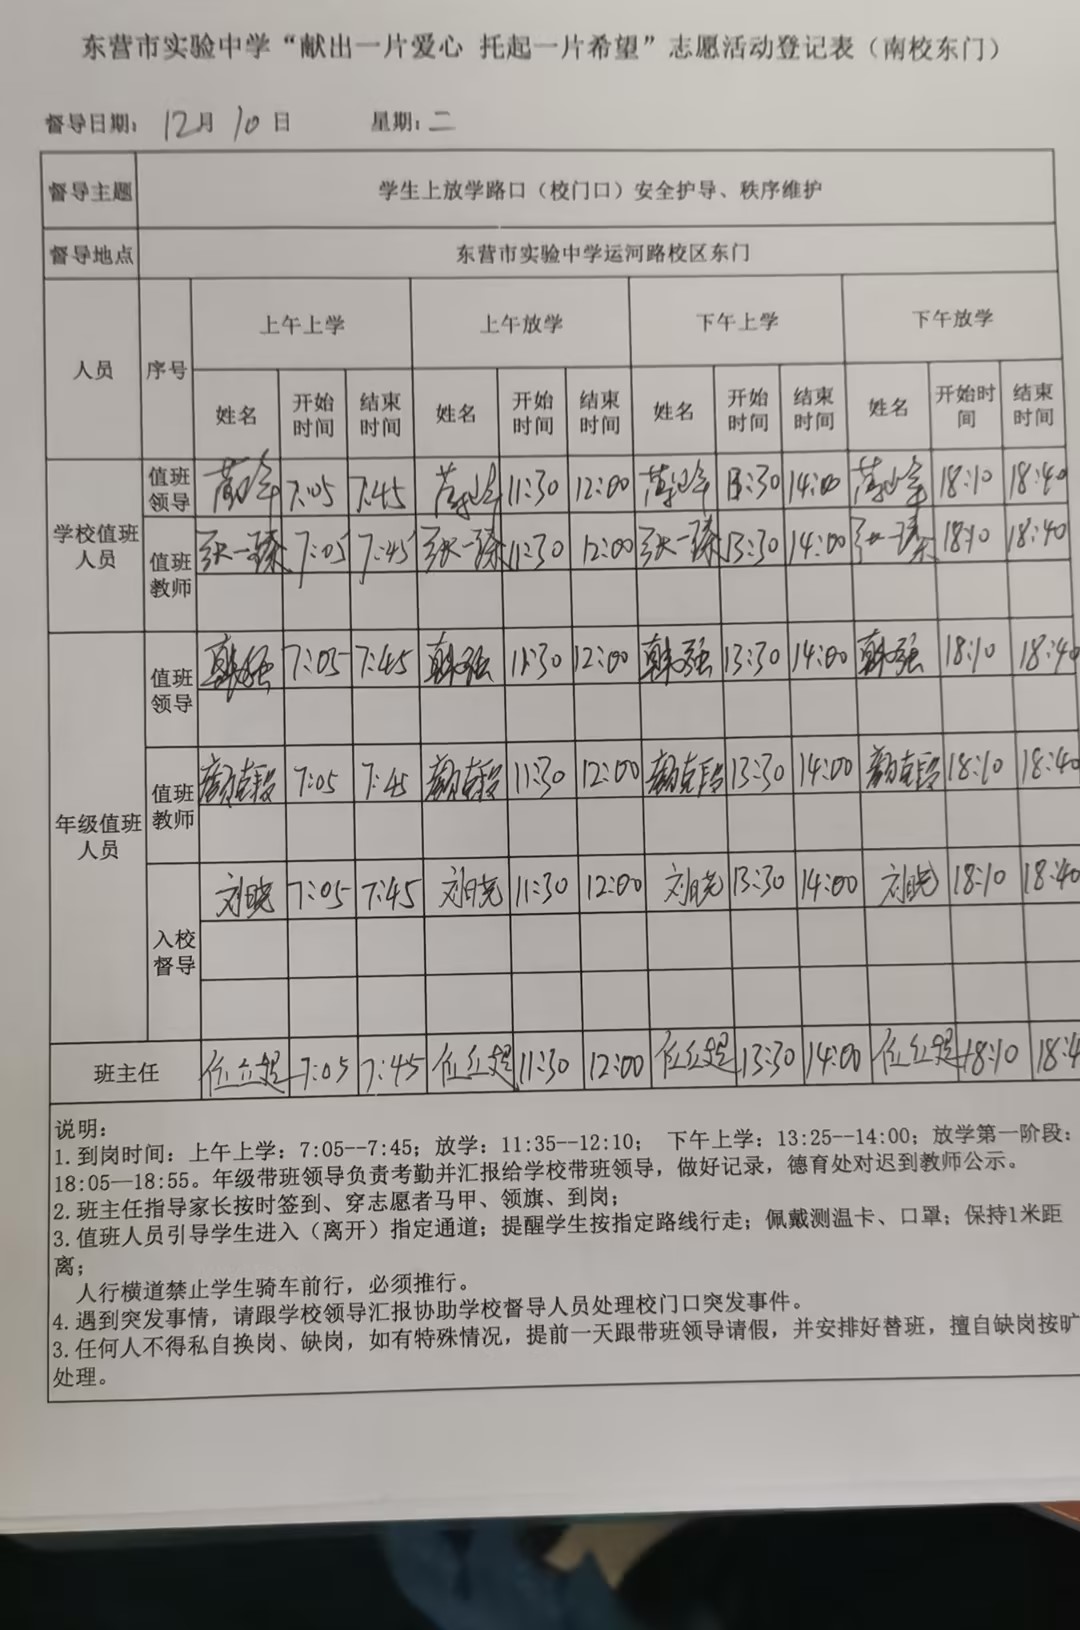 东营市实验中学“献出一片爱心 托起一片希望”志愿活动登记表（南校东门）
督导日期：12月10日 星期：二
督导主题 学生上放学路口（校门口）安全护导、秩序维护
督导地点 东营市实验中学运河路校区东门
人员 序号 上午上学 上午放学 下午上学 下午放学
姓名 开始时间 结束时间 姓名 开始时间 结束时间 姓名 开始时间 结束时间 姓名 开始时间 结束时间
学校值班人员
值班领导 7:05 7:45 11:30 12:00 13:30 14:00 18:10 18:40
值班教师 张一臻 7:05 7:45 张一臻 11:30 12:00 张一臻 13:30 14:00 张一臻 18:10 18:40
年级值班人员
值班领导 韩强 7:05 7:45 韩强 11:30 12:00 韩强 13:30 14:00 韩强 18:10 18:40
值班教师 7:05 7:45 11:30 12:00 13:30 14:00 18:10 18:40
入校督导 刘晓 7:05 7:45 刘晓 11:30 12:00 刘晓 13:30 14:00 刘晓 18:10 18:40
班主任 7:05 7:45 11:30 12:00 13:30 14:00 18:10 18:4
说明：
1.到岗时间：上午上学：7:05--7:45；放学：11:35--12:10； 下午上学：13:25--14:00；放学第一阶段：
18:05—18:55。年级带班领导负责考勤并汇报给学校带班领导，做好记录，德育处对迟到教师公示。
2.班主任指导家长按时签到、穿志愿者马甲、领旗、到岗；
3.值班人员引导学生进入（离开）指定通道；提醒学生按指定路线行走；佩戴测温卡、口罩；保持1米距
离；
人行横道禁止学生骑车前行，必须推行。
4.遇到突发事情，请跟学校领导汇报协助学校督导人员处理校门口突发事件。
3.任何人不得私自换岗、缺岗，如有特殊情况，提前一天跟带班领导请假，并安排好替班，擅自缺岗按旷
处理。